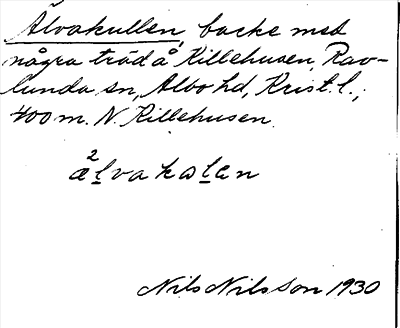 Älvakullen, backe med
några träd å Killehusen, Rav-
lunda sn, Albo hd, Krist. l.,
400 m. N. Killehusen.
2
älvakalen
Nils Nilsson 1930